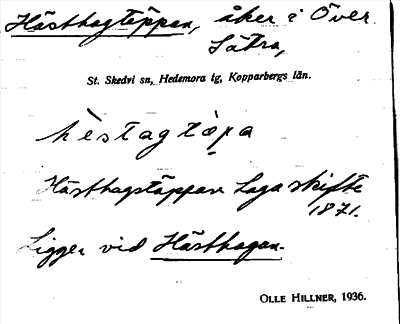 Hästhagtäppan, åker i Över
Sätra,
St. Skedvi sn, Hedemora tg, Kopparbergs län.
hèstagtòpa
Hästhagstäppan Laga skifte
1871.
Ligger vid Hästhagen.
OLLE HILLNER, 1936.